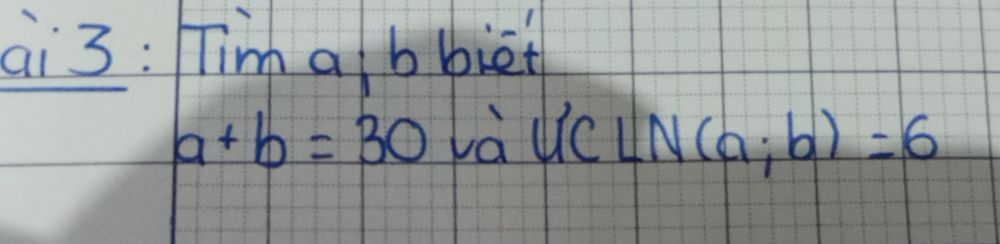 ài 3: Tìm a; b biết
a + b = 30 và ƯCLN(a; b) = 6